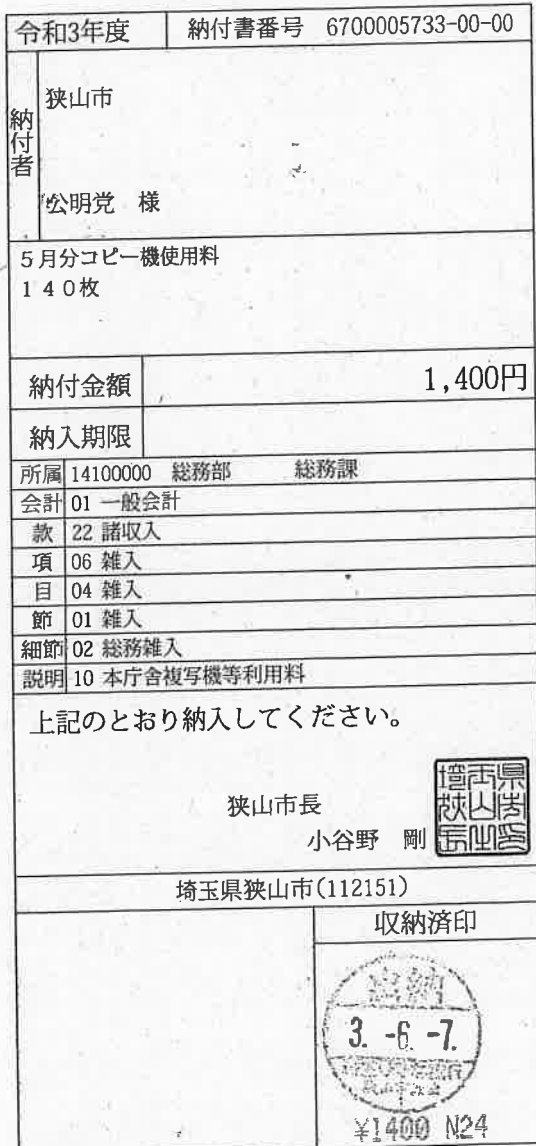 令和3年度 納付書番号 6700005733-00-00
納付者
狭山市
公明党 様
5月分コピー機使用料
140枚
納付金額 1,400円
納入期限
所属 14100000 総務部 総務課
会計 01 一般会計
款 22 諸収入
項 06 雑入
目 04 雑入
節 01 雑入
細節 02 総務雑入
説明 10 本庁舎複写機等利用料
上記のとおり納入してください。
狭山市長
小谷野 剛
埼玉県狭山市(112151)
収納済印
出納
3. -6. -7.
¥1400 N24